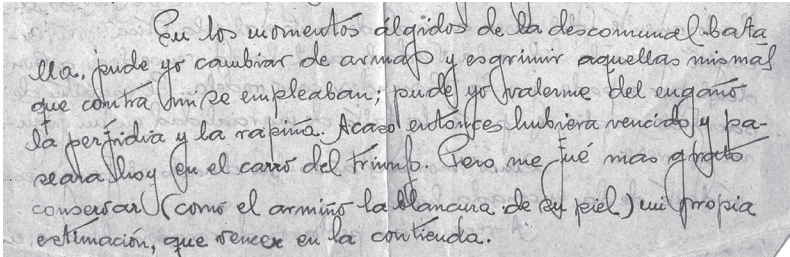 En los momentos álgidos de la descomunal bata
lla, pude yo cambiar de armas y esgrimir aquellas mismas
que contra mi se empleaban; pude yo valerme del engaño
la perfidia y la rapiña. Acaso entonces hubiera vencido y pa-
seara hoy en el carro del triunfo. Pero me fué mas grato
conservar (como el armiño la blancura de su piel) mi propia
estimación, que vencer en la contienda.